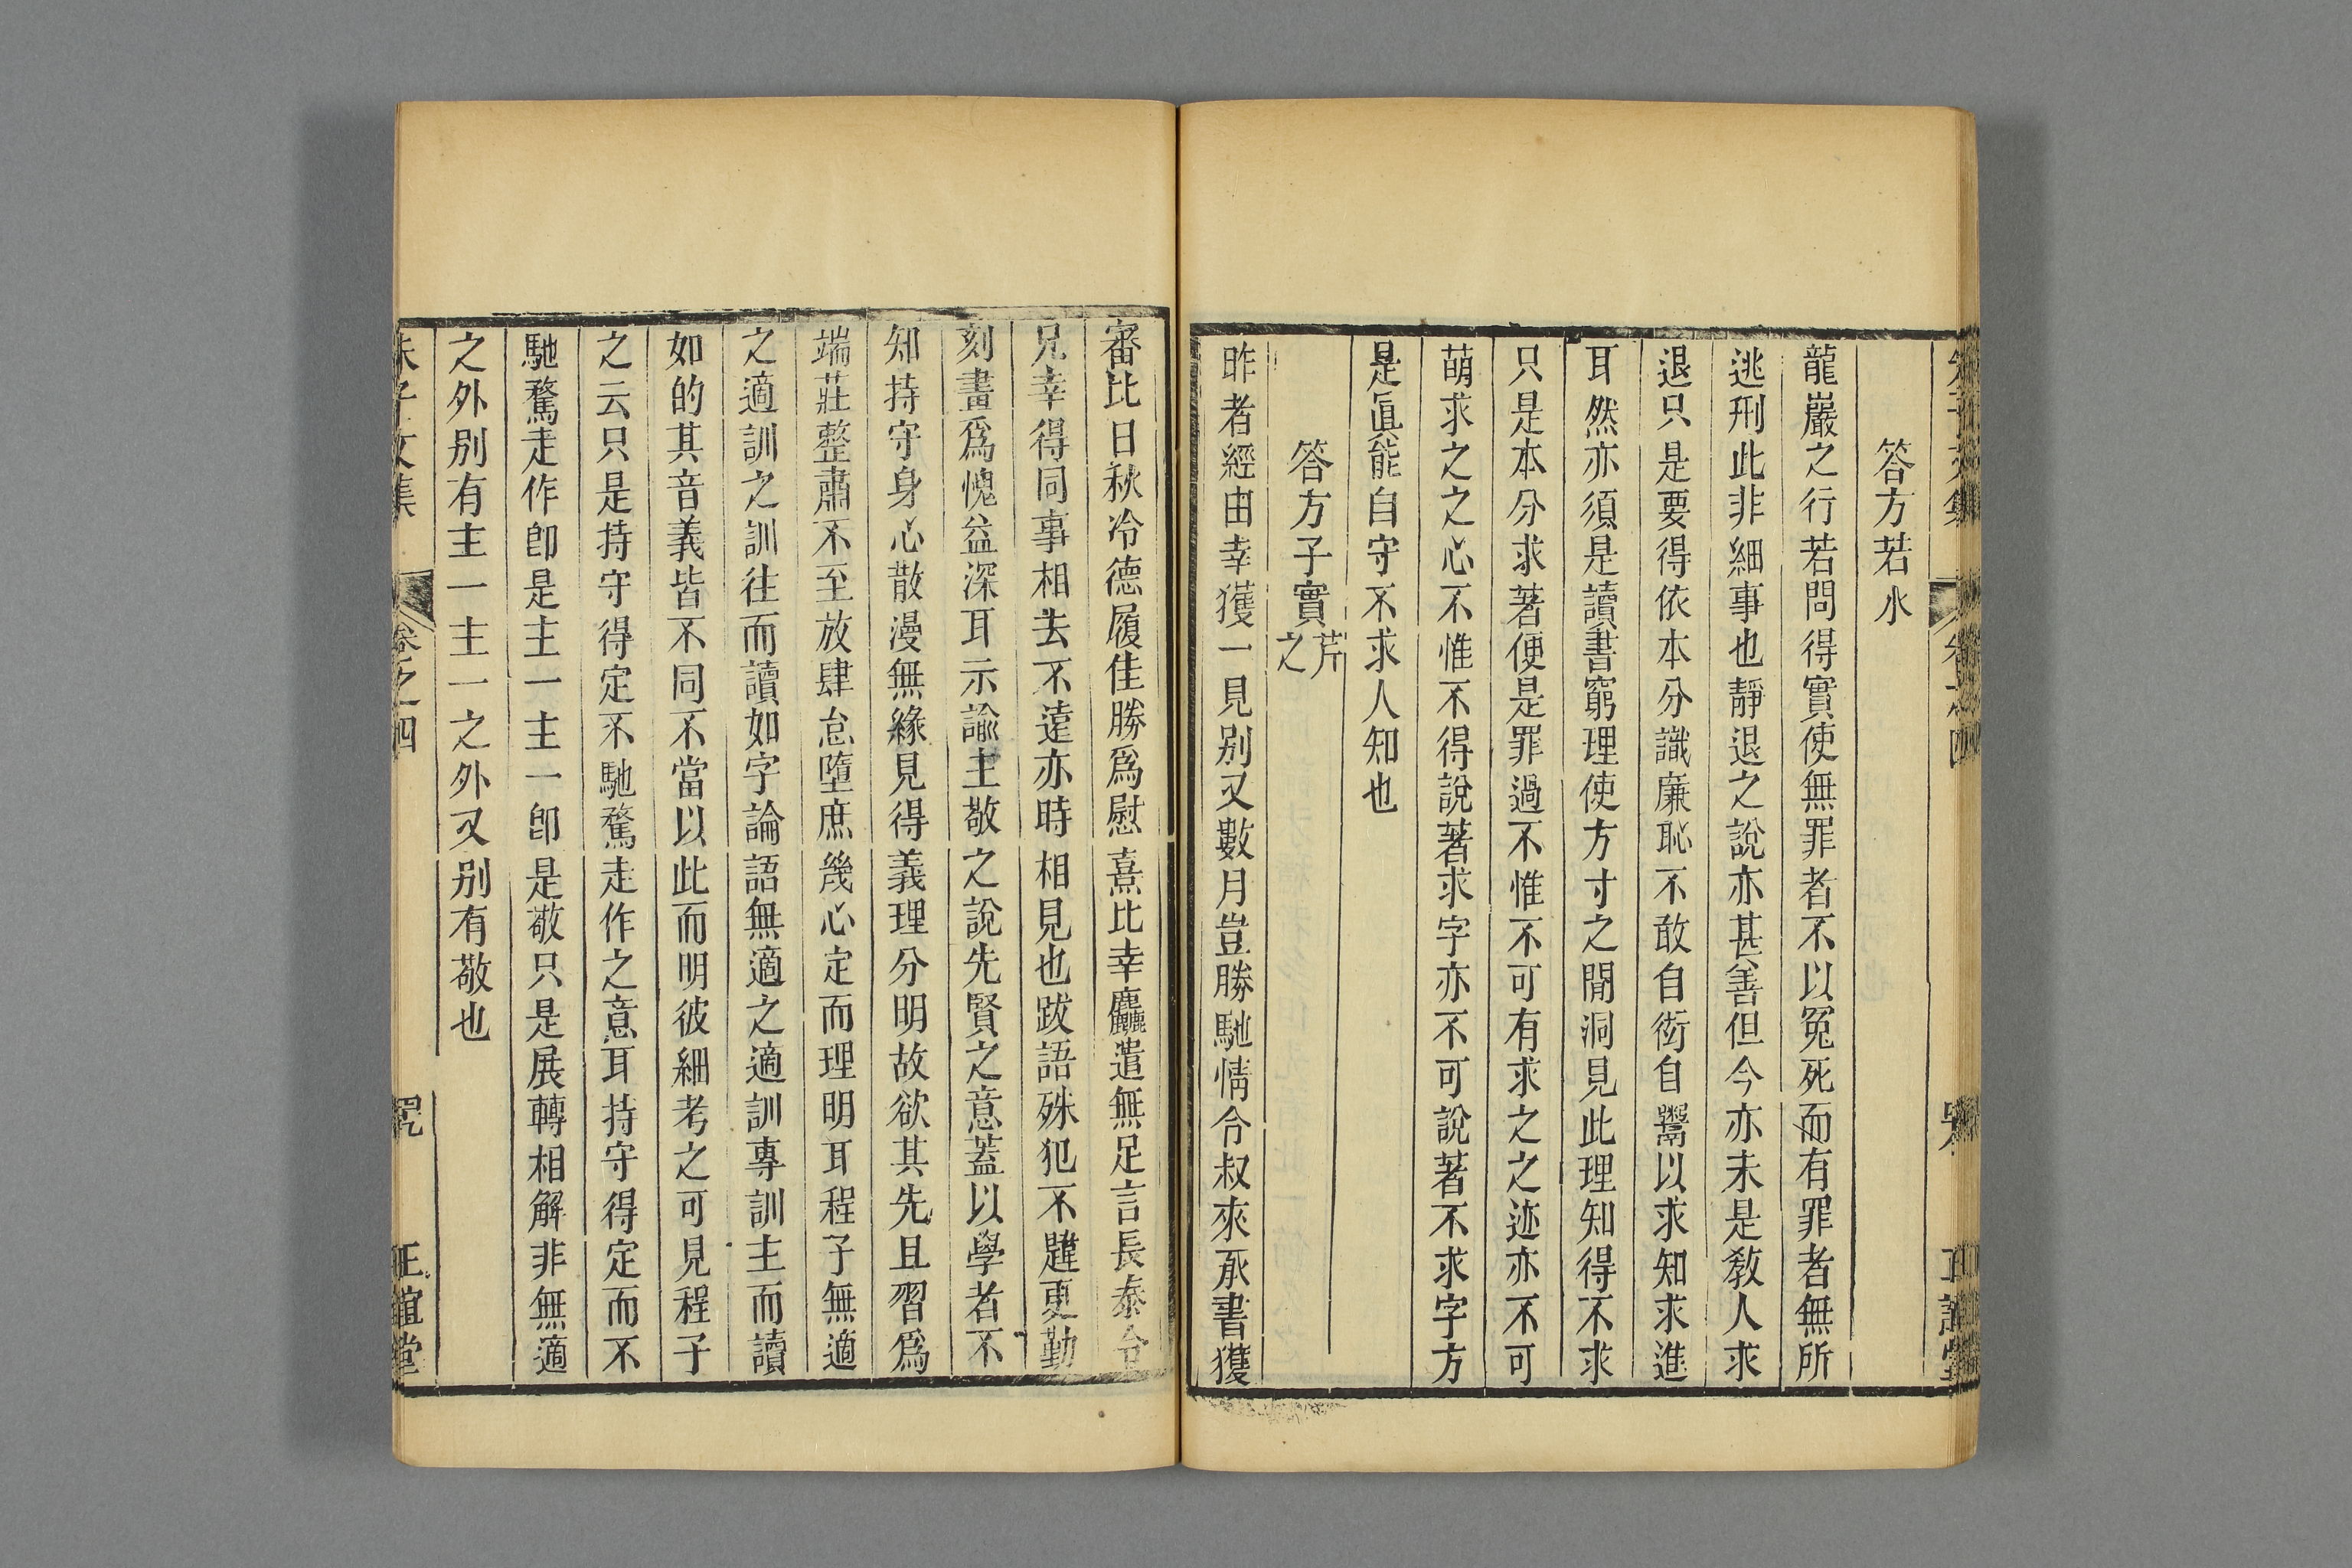 答方若水
龍巖之行若問得實使無罪者不以冤死而有罪者無所
逃刑此非細事也靜退之說亦甚善但今亦未是敎人求
退只是要得依本分識廉恥不敢自衒自鬻以求知求進
耳然亦須是讀書窮理使方寸之閒洞見此理知得不求
只是本分求著便是罪過不惟不可有求之之迹亦不可
萌求之之心不惟不得說著求字亦不可說著不求字方
是眞能自守不求人知也
答方子實芹之
昨者經由幸獲一見別又數月豈勝馳情令叔來承書獲
審比日秋冷德履佳勝爲慰熹比幸麤遣無足言長泰令
兄幸得同事相去不遠亦時相見也跋語殊犯不韙更勤
刻畫爲愧益深耳示諭主敬之說先賢之意蓋以學者不
知持守身心散漫無緣見得義理分明故欲其先且習爲
端莊整肅不至放肆怠墮庶幾心定而理明耳程子無適
之適訓之訓往而讀如字論語無適之適訓專訓主而讀
如的其音義皆不同不當以此而明彼細考之可見程子
之云只是持守得定不馳騖走作之意耳持守得定而不
馳騖走作卽是主一主一卽是敬只是展轉相解非無適
之外別有主一主一之外又別有敬也
朱子文集 卷之四 正誼堂